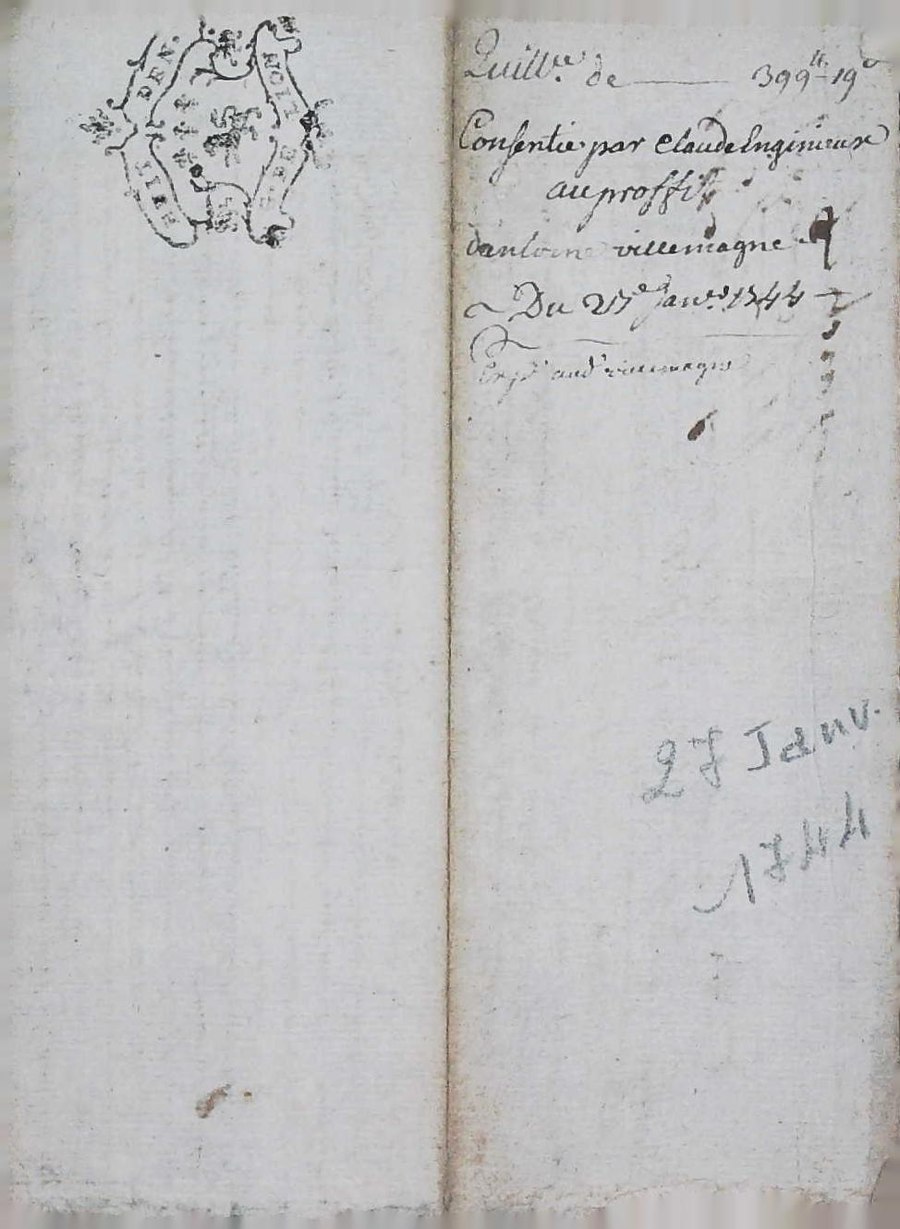 DEN.
NOIT
LIER
Quill.ce de — 399lt 19s
Consentie par Claude Enginieux
au proffit
dantoine villemagne
Du 27e Janv.er 1744
Exp.é aud.t villemagne
27 Janv.
1744